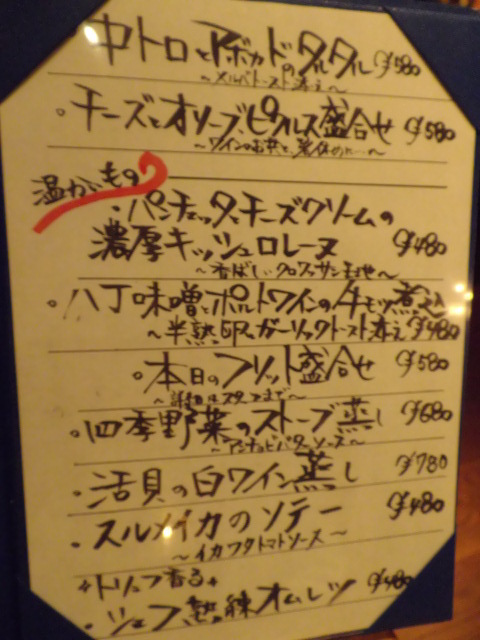 中トロとアボカドのタルタル ¥580
〜メルバトースト添え〜
・チーズとオリーブ、ピクルス盛合せ ¥580
〜ワインのお共と、箸休めに…〜
温かいもの
・パンチェッタ、チーズクリームの
濃厚キッシュロレーヌ ¥480
〜香ばしいクロワッサン生地〜
・八丁味噌とポルトワインの牛モツ煮込
〜半熟卵、ガーリックトースト添え ¥480
・本日のフリット盛合せ ¥580
〜詳細はスタッフまで〜
・四季野菜のストーブ蒸し ¥680
〜アンチョビバターソース〜
・活貝の白ワイン蒸し ¥780
・スルメイカのソテー ¥480
〜イカワタトマトソース〜
*トリュフ香る*
・シェフ熟練オムレツ ¥480